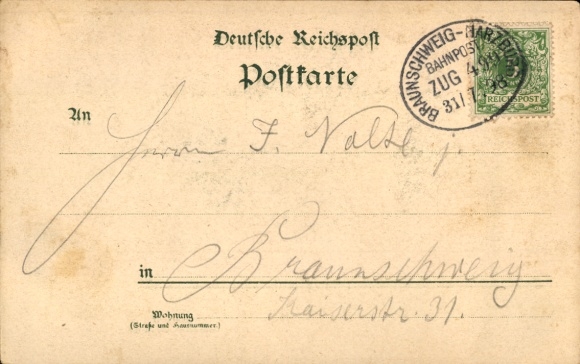 Deutsche Reichspost
Postkarte
BRAUNSCHWEIG-HARZBURG
BAHNPOST
ZUG
31/7 98
REICHSPOST
An
Herrn F. Nolte j.
in Braunschweig
Kaiserstr. 31.
Wohnung
(Straße und Hausnummer.)